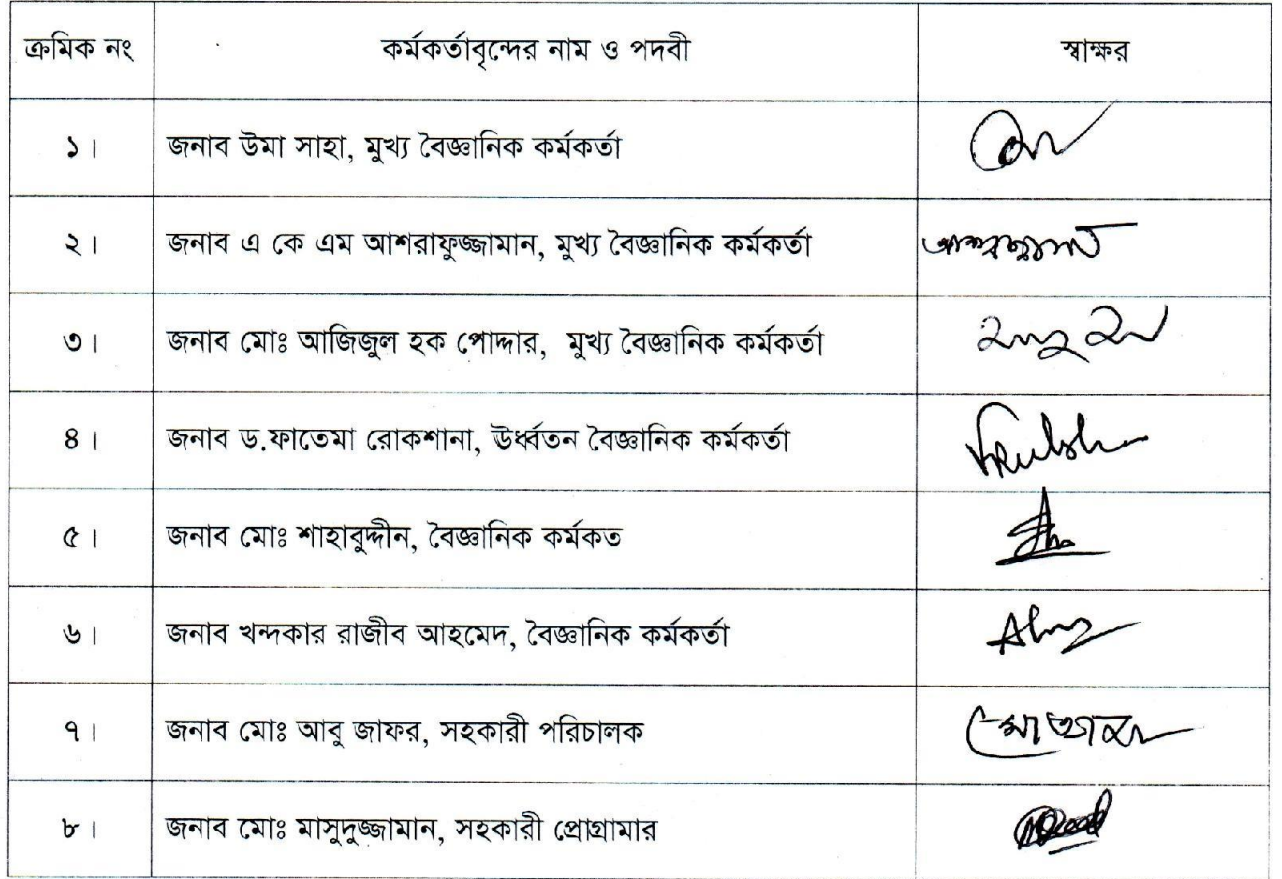 ক্রমিক নং কর্মকর্তাবৃন্দের নাম ও পদবী স্বাক্ষর
১। জনাব উমা সাহা, মুখ্য বৈজ্ঞানিক কর্মকর্তা
২। জনাব এ কে এম আশরাফুজ্জামান, মুখ্য বৈজ্ঞানিক কর্মকর্তা
৩। জনাব মোঃ আজিজুল হক পোদ্দার, মুখ্য বৈজ্ঞানিক কর্মকর্তা
৪। জনাব ড.ফাতেমা রোকশানা, উর্ধ্বতন বৈজ্ঞানিক কর্মকর্তা
৫। জনাব মোঃ শাহাবুদ্দীন, বৈজ্ঞানিক কর্মকত
৬। জনাব খন্দকার রাজীব আহমেদ, বৈজ্ঞানিক কর্মকর্তা
৭। জনাব মোঃ আবু জাফর, সহকারী পরিচালক
৮। জনাব মোঃ মাসুদুজ্জামান, সহকারী প্রোগ্রামার